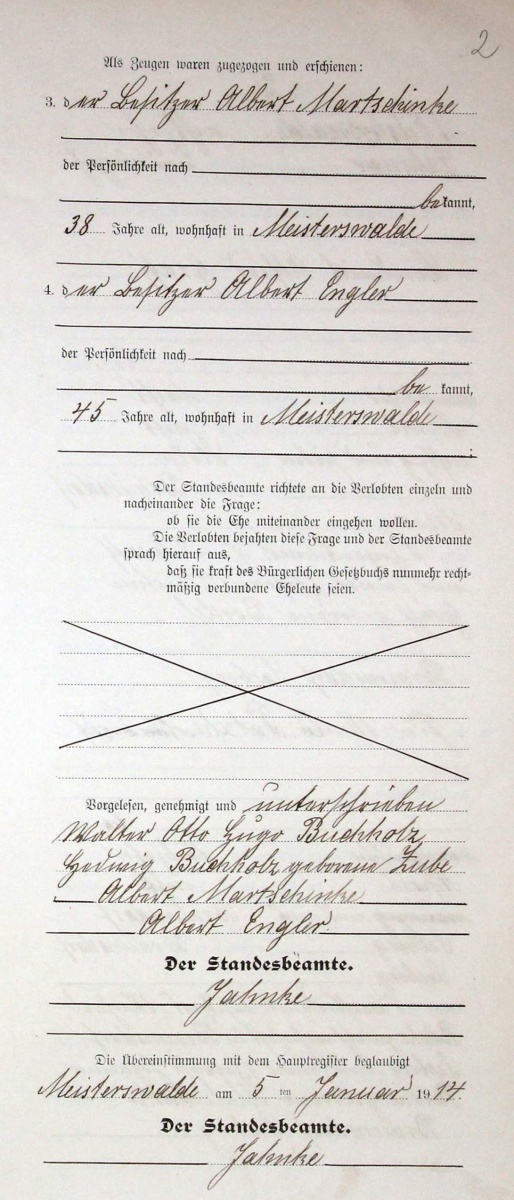 2
Als Zeugen waren zugezogen und erschienen:
3. der Besitzer Albert Martschinke
der Persönlichkeit nach
bekannt,
38 Jahre alt, wohnhaft in Meisterswalde
4. der Besitzer Albert Engler
der Persönlichkeit nach
be kannt,
45 Jahre alt, wohnhaft in Meisterswalde
;
Der Standesbeamte richtete an die Verlobten einzeln und
nacheinander die Frage:
ob sie die Ehe miteinander eingehen wollen.
Die Verlobten bejahten diese Frage und der Standesbeamte
sprach hierauf aus,
daß sie kraft des Bürgerlichen Gesetzbuchs nunmehr recht-
mäßig verbundene Eheleute seien.
Vorgelesen, genehmigt und unterschrieben
Walter Otto Hugo Buchholz,
Hedwig Buchholz geborene Zube
Albert Martschinke
Albert Engler.
Der Standesbeamte.
Jahnke
Die Übereinstimmung mit dem Hauptregister beglaubigt
Meisterswalde am 5 ten Januar 1914.
Der Standesbeamte.
Jahnke